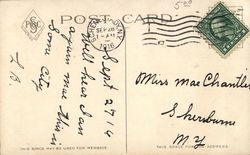 POST CARD
SEP 28
1-AM
1916
Sept 27-16
Will hear I am
again mae this is
Some City
L B.
Miss Mae Chantler
Sherburne
N.Y
THIS SPACE MAY BE USED FOR MESSAGE
THIS SPACE FOR ADDRESS